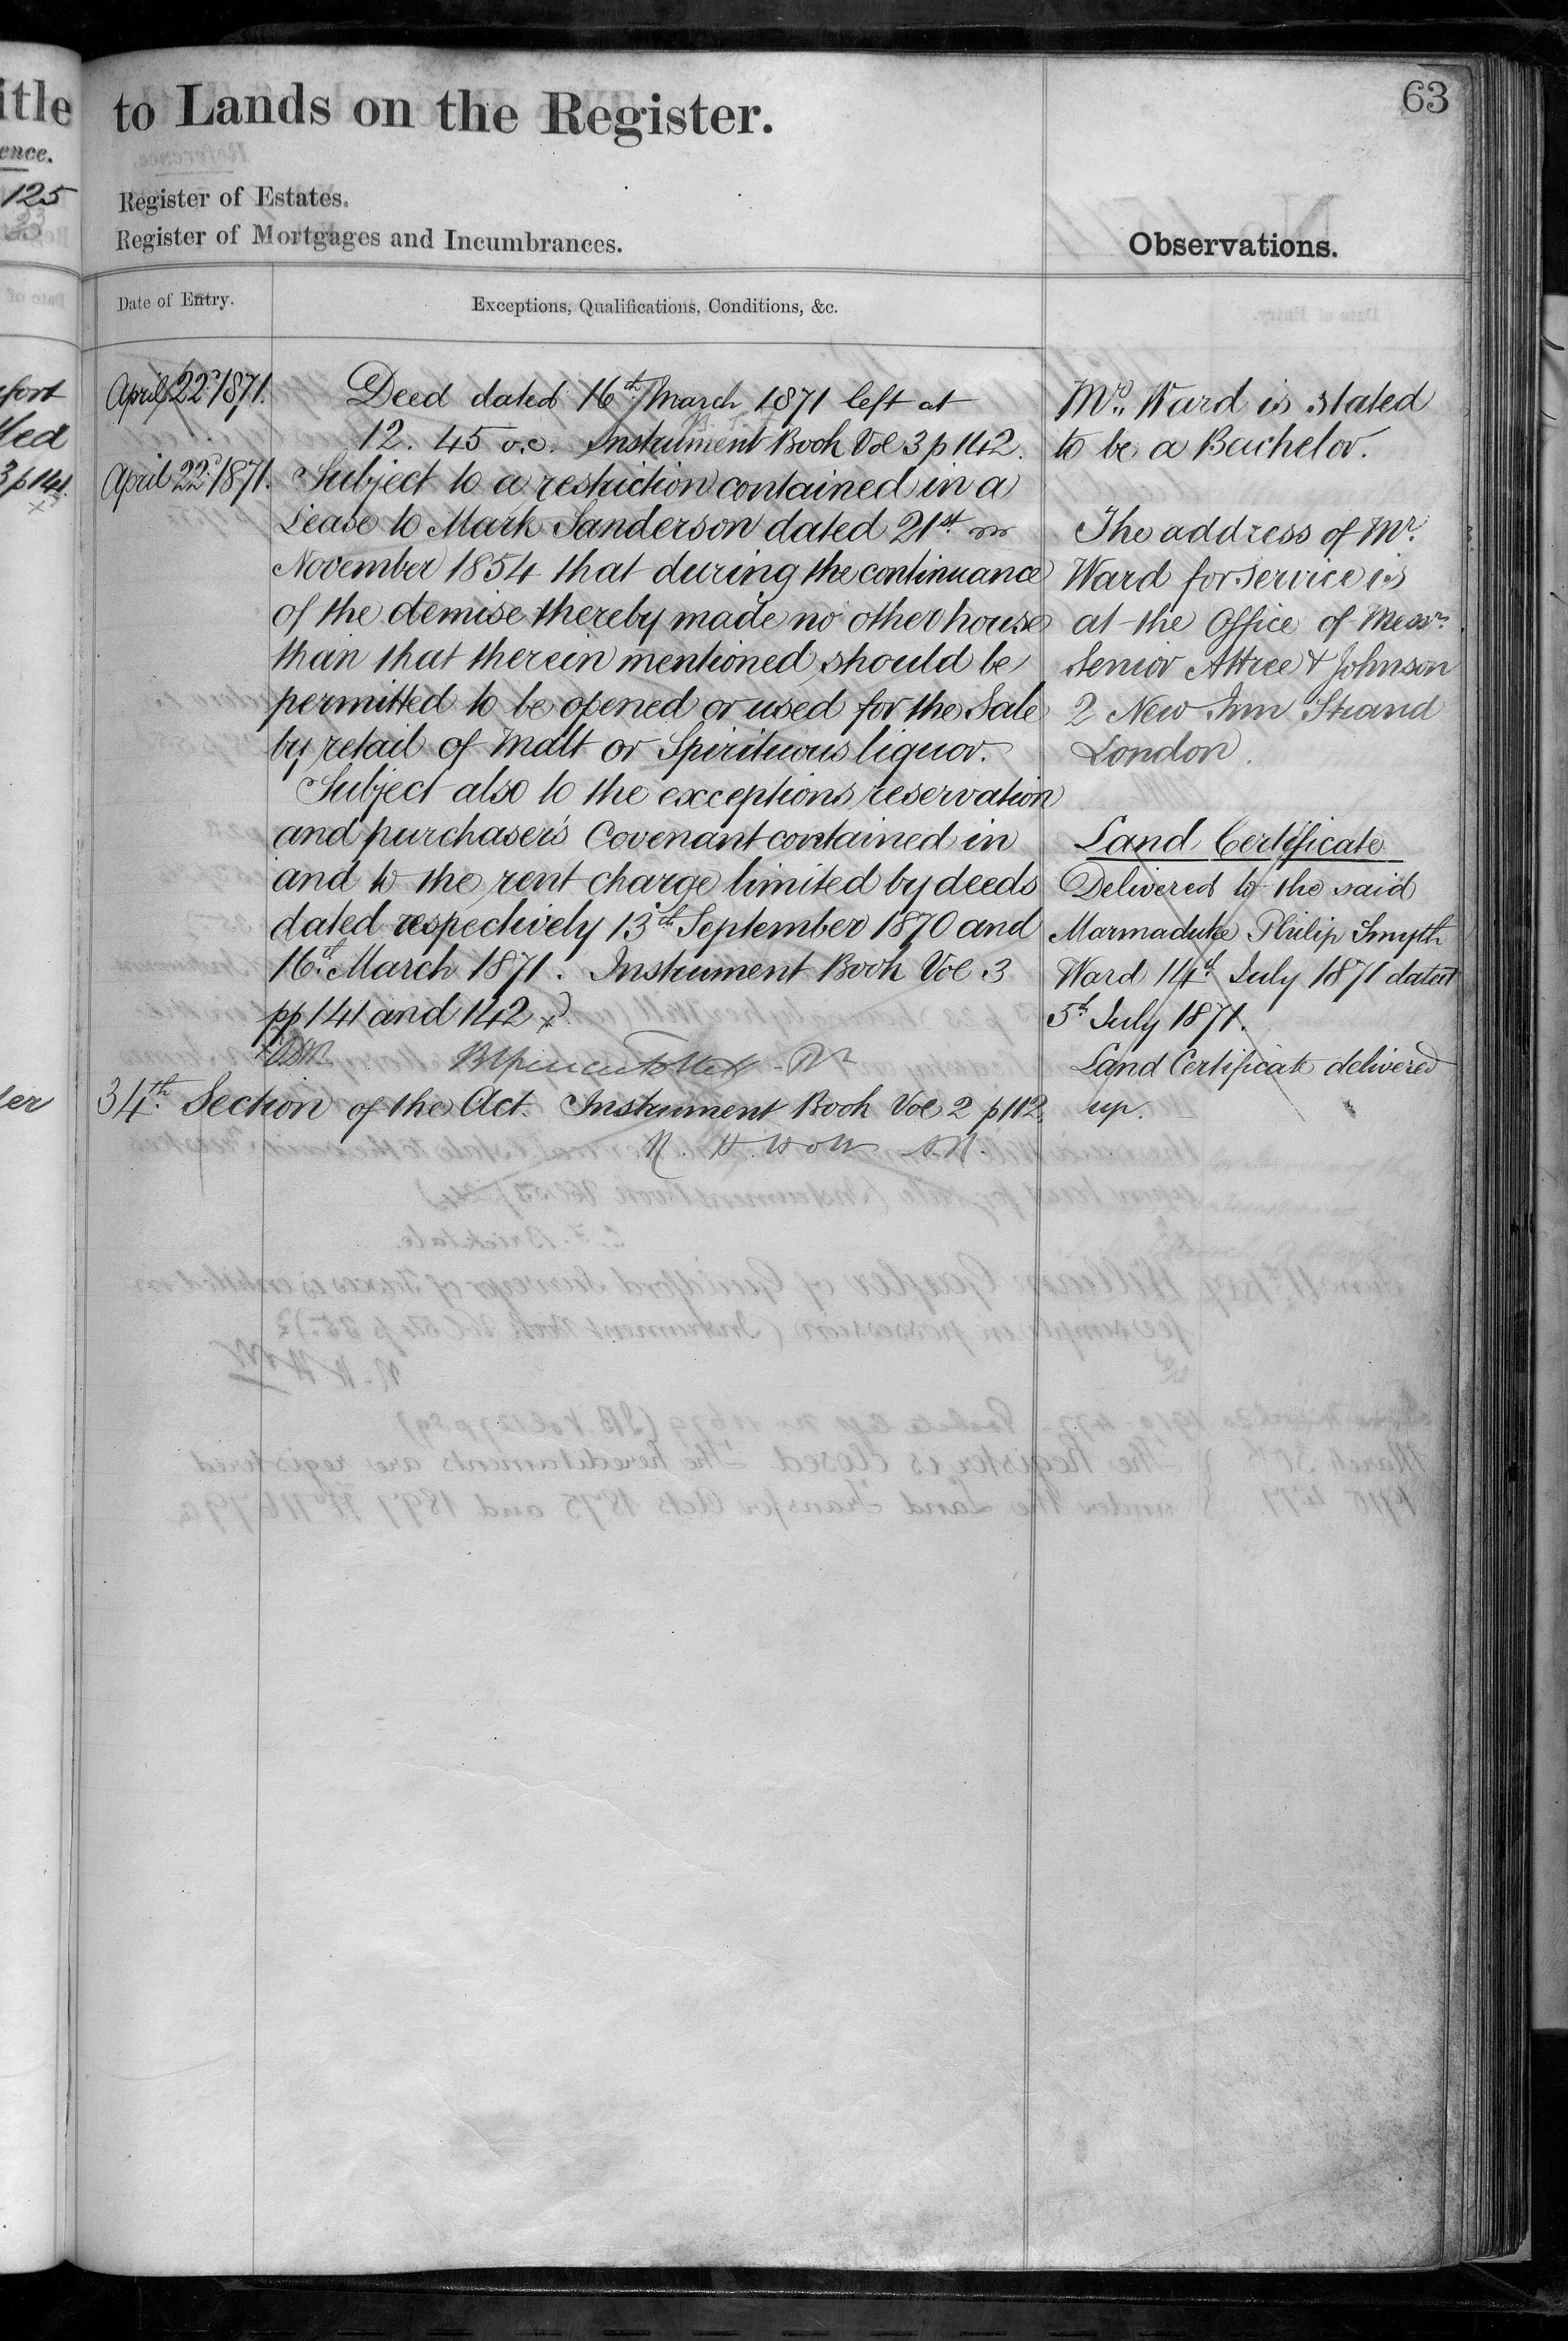 itle
ence.
125
23
fort
3 p 141.
to Lands on the Register.
63
Register of Estates.
Register of Mortgages and Incumbrances.
Observations.
Date of Entry.
Exceptions, Qualifications, Conditions, &c.
April 22d 1871.
Deed dated 16th March 1871 left at
12. 45 o.c. Instrument Book Vol 3 p 142.
April 22d 1871.
Subject to a restriction contained in a
Lease to Mark Sanderson dated 21st
November 1854 that during the continuance
of the demise thereby made no other house
than that therein mentioned should be
permitted to be opened or used for the Sale
by retail of Malt or Spirituous liquor.
Subject also to the exceptions reservation
and purchaser's Covenant contained in
and to the rent charge limited by deeds
dated respectively 13th September 1870 and
16th March 1871. Instrument Book Vol 3
pp 141 and 142
34th Section of the Act. Instrument Book Vol 2 p 112.
Mr. Ward is stated
to be a Bachelor.
The address of Mr.
Ward for service is
at the Office of Messrs.
Senior Attree & Johnson
2 New Inn Strand
London.
Land Certificate
Delivered to the said
Marmaduke Philip Smyth
Ward 14th July 1871 dated
5th July 1871.
Land Certificate delivered
up.